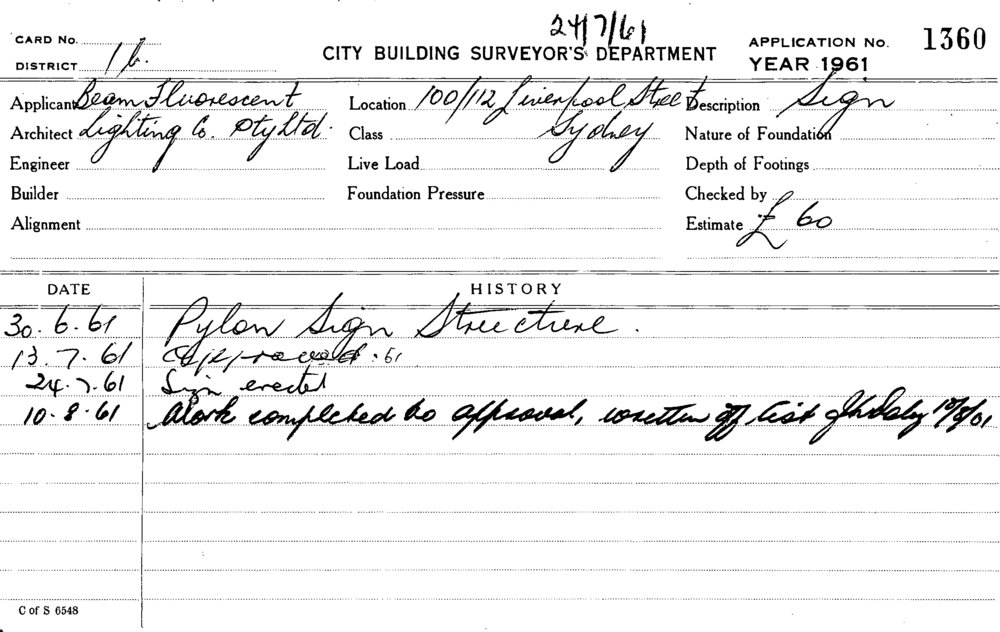 24/7/61
CARD No.
DISTRICT 1b.
CITY BUILDING SURVEYOR'S DEPARTMENT
APPLICATION No. 1360
YEAR 1961
Applicant Beam Fluorescent Location 100/112 Liverpool Street Description Sign
Architect Lighting Co. Pty Ltd. Class Sydney Nature of Foundation
Engineer Live Load Depth of Footings
Builder Foundation Pressure Checked by
Alignment Estimate £ 60
DATE HISTORY
30.6.61 Pylon Sign Structure.
13.7.61 Approved .61
24.7.61 Sign erected
10.8.61 Work completed to approval, written off list 10/8/61
C of S 6548